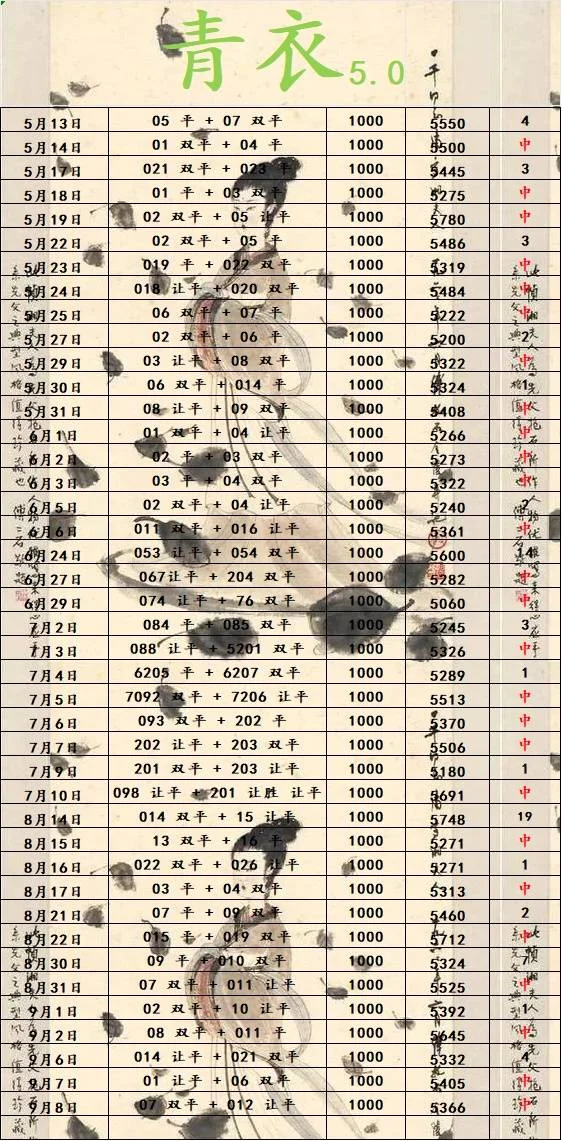 青衣5.0
5月13日 05 平 + 07 双平 1000 5550 4
5月14日 01 双平 + 04 平 1000 5500 中
5月17日 021 双平 + 023 平 1000 5445 3
5月18日 01 平 + 03 双平 1000 5275 中
5月19日 02 双平 + 05 让平 1000 5780 中
5月22日 02 双平 + 05 平 1000 5486 3
5月23日 019 平 + 022 双平 1000 5319 中
5月24日 018 让平 + 020 双平 1000 5484 中
5月25日 06 双平 + 07 平 1000 5222 中
5月27日 02 双平 + 06 平 1000 5200 2
5月29日 03 让平 + 08 双平 1000 5322 中
5月30日 06 双平 + 014 平 1000 5324 1
5月31日 08 让平 + 09 双平 1000 5408 中
6月1日 01 双平 + 04 让平 1000 5266 中
6月2日 02 平 + 03 双平 1000 5273 中
6月3日 03 平 + 04 双平 1000 5322 中
6月5日 02 双平 + 04 让平 1000 5240 2
6月6日 011 双平 + 016 让平 1000 5361 中
6月24日 053 让平 + 054 双平 1000 5600 14
6月27日 067让平 + 204 双平 1000 5282 中
6月29日 074 让平 + 76 双平 1000 5060 中
7月2日 084 平 + 085 双平 1000 5245 3
7月3日 088 让平 + 5201 双平 1000 5326 中
7月4日 6205 平 + 6207 双平 1000 5289 1
7月5日 7092 双平 + 7206 让平 1000 5513 中
7月6日 093 双平 + 202 平 1000 5370 中
7月7日 202 让平 + 203 双平 1000 5506 中
7月9日 201 双平 + 203 让平 1000 5180 1
7月10日 098 让平 + 201 让胜 让平 1000 5691 中
8月14日 014 双平 + 15 让平 1000 5748 19
8月15日 13 双平 + 16 平 1000 5271 中
8月16日 022 双平 + 026 让平 1000 5271 1
8月17日 03 平 + 04 双平 1000 5313 中
8月21日 07 平 + 09 双平 1000 5460 2
8月22日 015 平 + 019 双平 1000 5712 中
8月30日 09 平 + 010 双平 1000 5324 7
8月31日 07 双平 + 011 让平 1000 5525 中
9月1日 02 双平 + 10 让平 1000 5392 1
9月2日 08 双平 + 011 平 1000 5645 中
9月6日 014 让平 + 021 双平 1000 5332 4
9月7日 01 让平 + 06 双平 1000 5405 中
9月8日 07 双平 + 012 让平 1000 5366 中